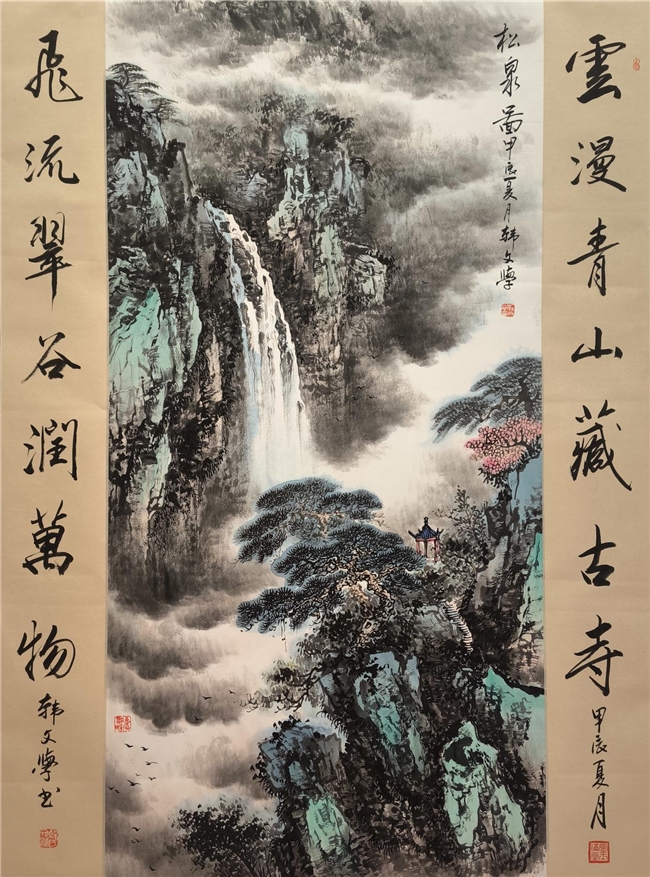 雲漫青山藏古寺
甲辰夏月
松泉圖
甲辰夏月韩文學
飛流翠谷潤萬物
韩文學书